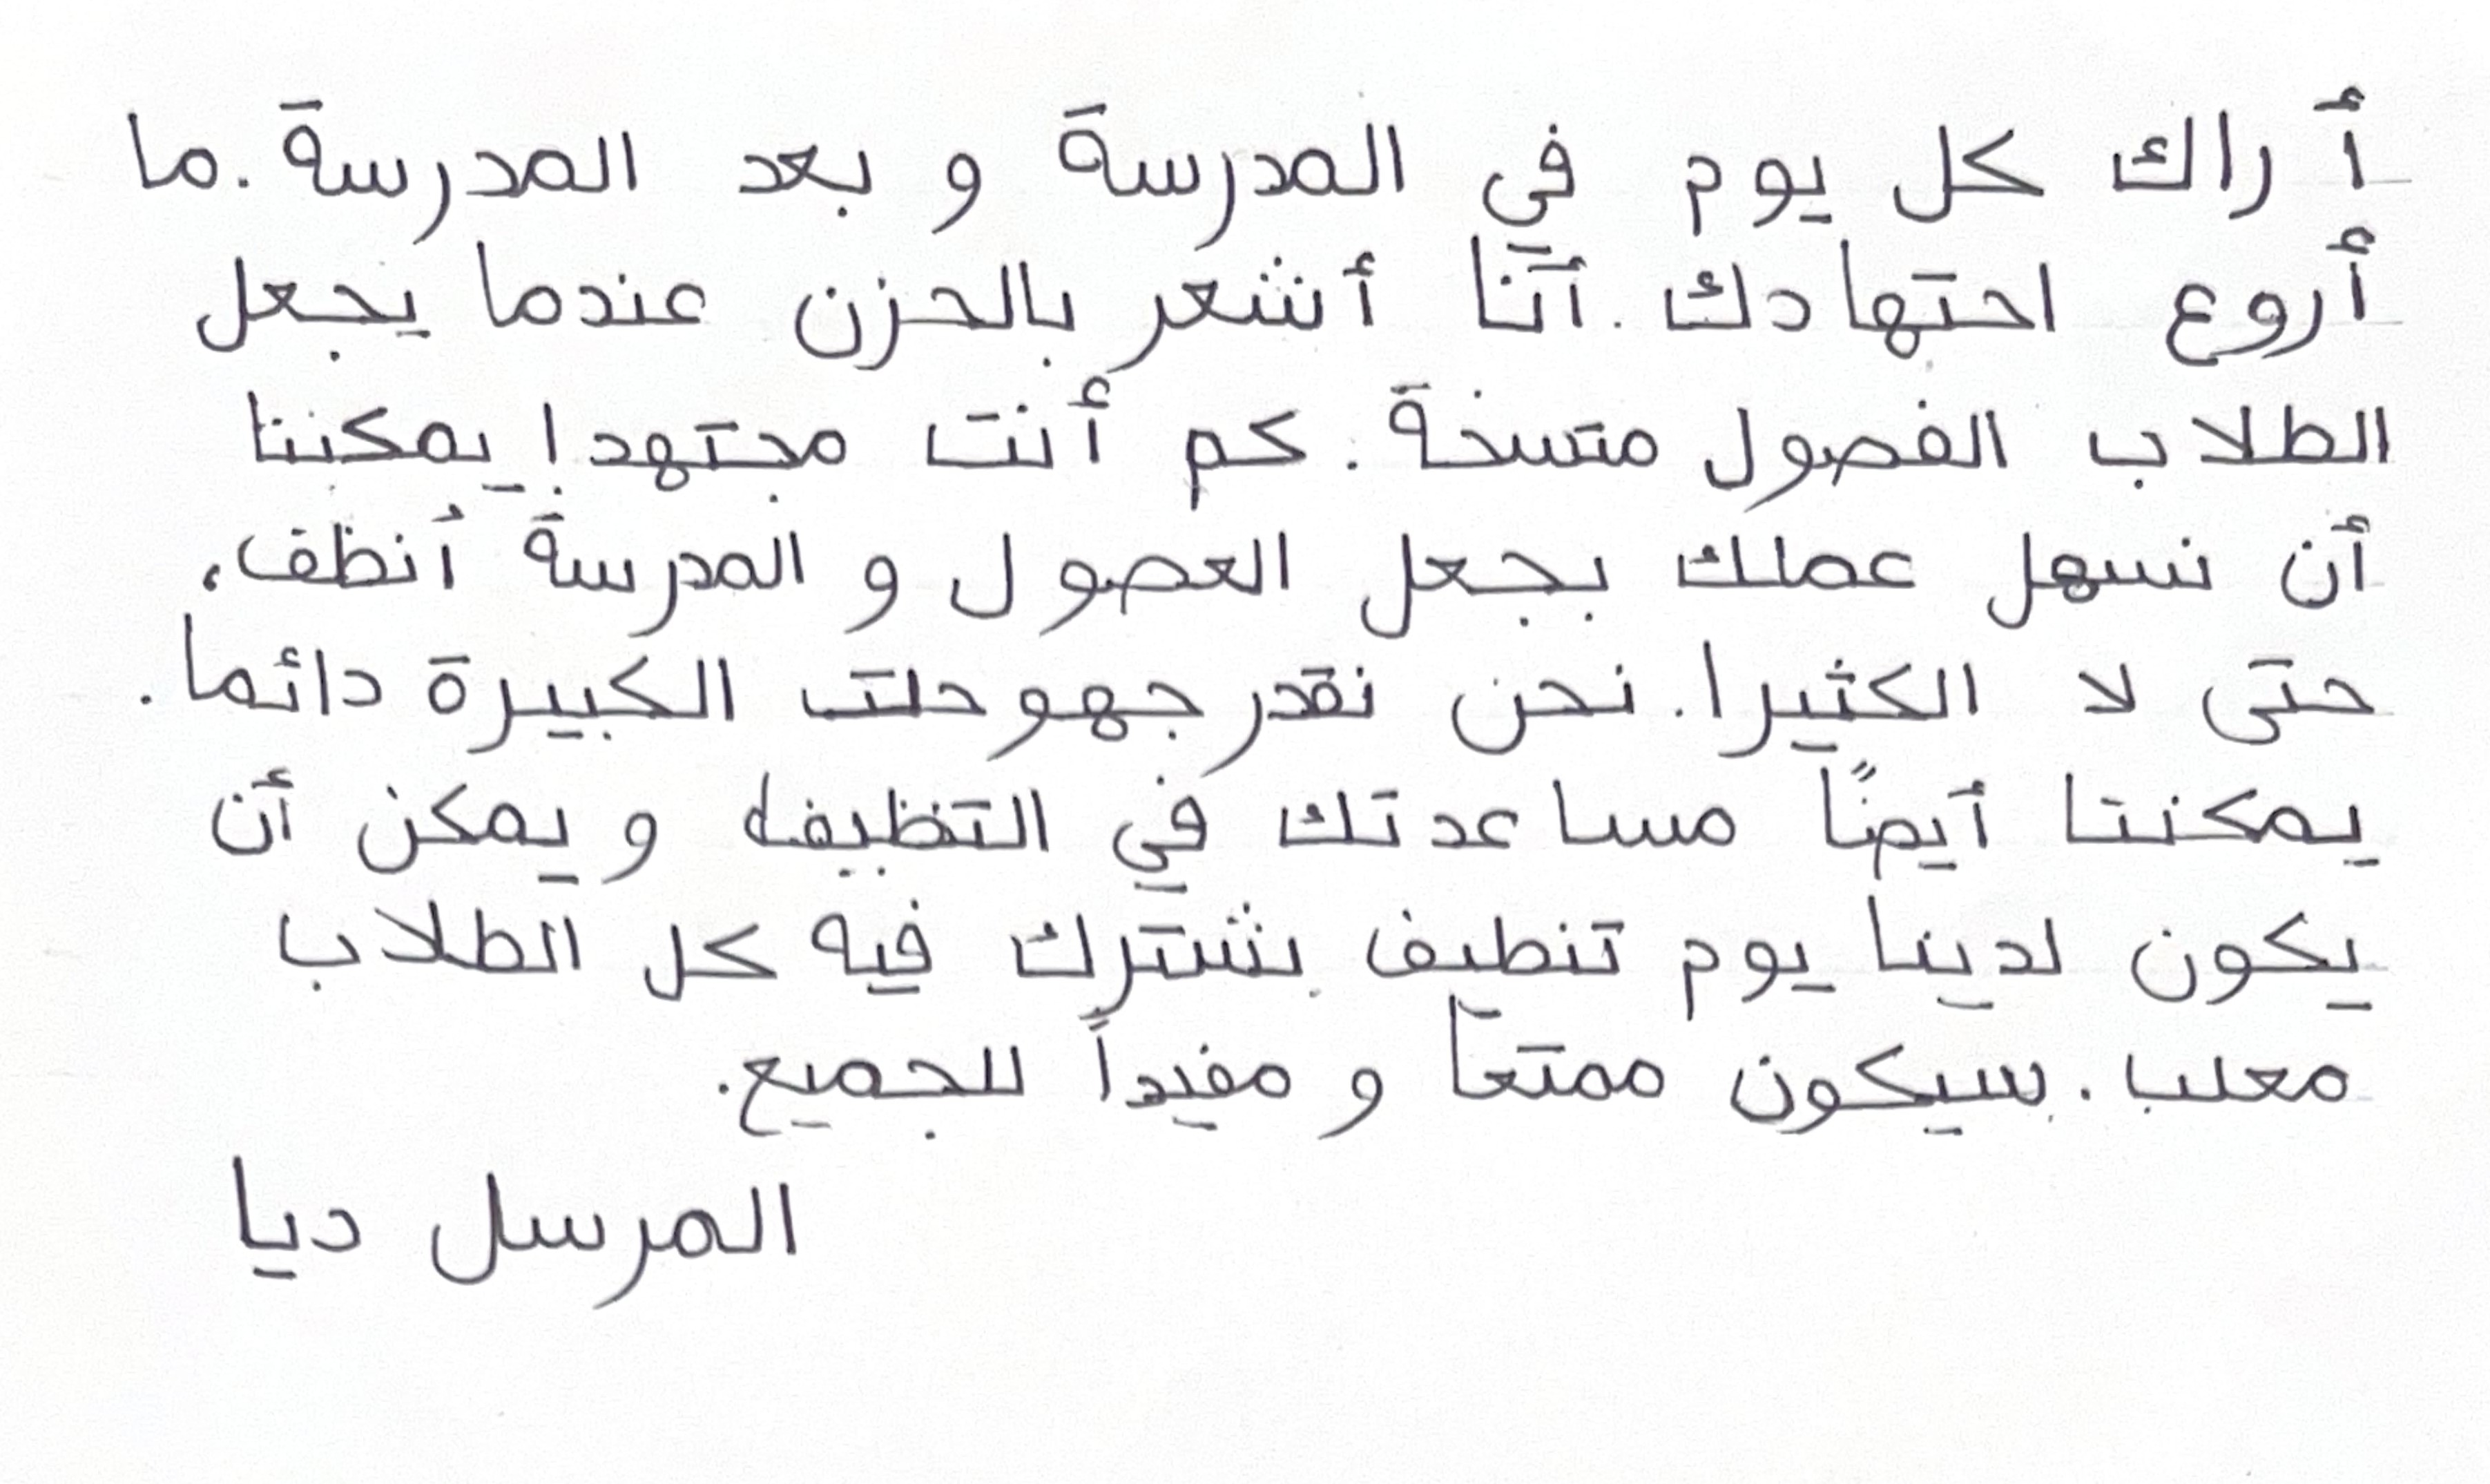 أراك كل يوم في المدرسة و بعد المدرسة. ما
أروع احتهادك. أنا أشعر بالحزن عندما يجعل
الطلاب الفصول متسخة. كم أنت مجتهدا يمكننا
أن نسهل عملك بجعل العصول و المدرسة أنظف،
حتى لا الكثيرا. نحن نقدر الكبيرة دائما.
يمكننا أيضًا مساعدتك في و يمكن أن
يكون لدينا يوم تنطيف بشترك فيه كل الطلاب
معلب. سيكون ممتعا و مفيداً للجميع.
المرسل ديا